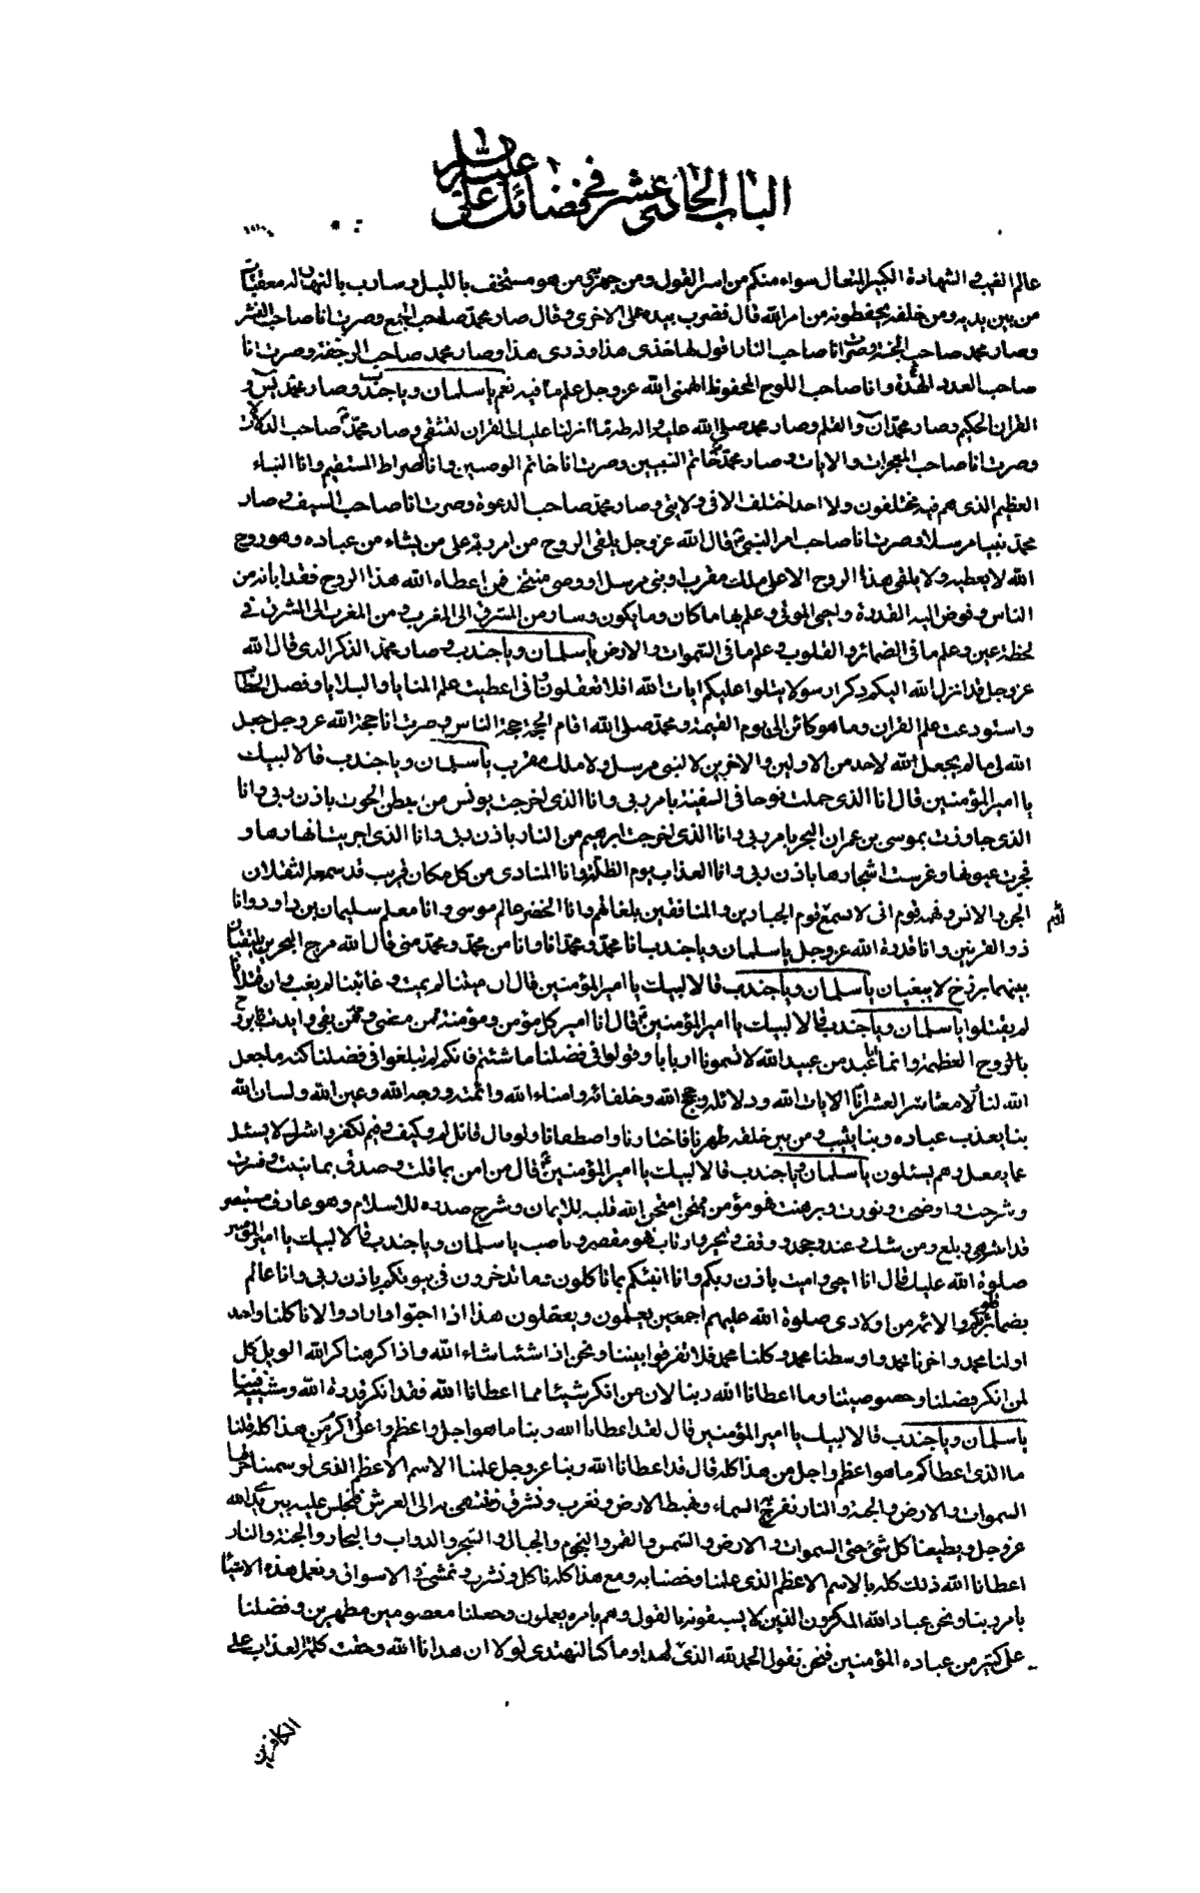 الباب الحادى عشر فى فضائل على عليه السلام
عالم الغيب و الشهادة الكبير المتعال سواء منكم من اسر القول و من جهر به و من هو مستخف بالليل و سارب بالنهار له معقبات
من بين يديه و من خلفه يحفظونه من امر الله قال فضرب بيده على الاخرى و قال صار محمد صاحب الجمع و صرت انا صاحب النشر
و صار محمد صاحب الجنة و صرت انا صاحب النار اقول لها خذى هذا و ذرى هذا و صار محمد صاحب الرجفة و صرت انا
صاحب العدد الهدة و انا صاحب اللوح المحفوظ الهمنى الله عز و جل علم ما فيه نعم يا سلمان و يا جندب و صار محمد يس و
القران الحكيم و صار محمد ن و القلم و صار محمد صلى الله عليه و اله طه ما انزلنا عليك القران لتشقى و صار محمد صاحب الدلالات
و صرت انا صاحب المعجزات و الايات و صار محمد خاتم النبيين و صرت انا خاتم الوصيين و انا الصراط المستقيم و انا النباء
العظيم الذى هم فيه مختلفون و لا احد اختلف الا فى ولايتى و صار محمد صاحب الدعوة و صرت انا صاحب السيف و صار
محمد نبيا مرسلا و صرت انا صاحب امر النبى قال الله عز و جل يلقى الروح من امره على من يشاء من عباده و هو روح
الله لا يعطيه و لا يلقى هذا الروح الا على ملك مقرب او نبى مرسل او وصى منتجب فمن اعطاه الله هذا الروح فقد ابانه من
الناس و فوض اليه القدرة و احيى الموتى و علم بها ما كان و ما يكون و سار من المشرق الى المغرب و من المغرب الى المشرق فى
لحظة عين و علم ما فى الضمائر و القلوب و علم ما فى السموات و الارض يا سلمان و يا جندب و صار محمد الذكر الذى قال الله
عز و جل قد انزل الله اليكم ذكرا رسولا يتلوا عليكم ايات الله افلا تعقلون انى اعطيت علم المنايا و البلايا و فصل الخطاب
و استودعت علم القران و ما هو كائن الى يوم القيمة و محمد صلى الله اقام الحجة حجة الناس و صرت انا حجة الله عز و جل جعل
الله لى ما لم يجعل الله لاحد من الاولين و الاخرين لا لنبى مرسل و لا ملك مقرب يا سلمان و يا جندب قالا لبيك
يا امير المؤمنين قال انا الذى حملت نوحا فى السفينة بامر ربى و انا الذى اخرجت يونس من بطن الحوت باذن ربى و انا
الذى جاوزت بموسى بن عمران البحر بامر ربى و انا الذى اخرجت ابرهيم من النار باذن ربى و انا الذى اجريت انهارها و
فجرت عيونها و غرست اشجارها باذن ربى و انا العذاب يوم الظلة و انا المنادى من كل مكان قريب قد سمعه الثقلان
الجن و الانس و فهمه قوم انى لاسمع قوم الجبارين و المنافقين بلغاتهم و انا الخضر عالم موسى و انا معلم سليمان بن داود و انا
ذو القرنين و انا قدرة الله عز و جل يا سلمان و يا جندب انا محمد و محمد انا و انا من محمد و محمد منى قال الله مرج البحرين يلتقيان
بينهما برزخ لا يبغيان يا سلمان و يا جندب قالا لبيك يا امير المؤمنين قال ان ميتنا لم يمت و غائبنا لم يغب و ان قتلانا
لم يقتلوا يا سلمان و يا جندب قالا لبيك يا امير المؤمنين قال انا امير كل مؤمن و مؤمنة ممن مضى و ممن بقى و ايدت بروح
بالروح العظمة و انما انا عبد من عبيد الله لا تسمونا اربابا و قولوا فى فضلنا ما شئتم فانكم لم تبلغوا فى فضلنا كنه ما جعل
الله لنا و لا معشار العشر لانا ايات الله و دلائله و حجج الله و خلفائه و امناء الله و ائمته و وجه الله و عين الله و لسان الله
بنا يعذب عباده و بنا يثيب و من بين خلقه طهرنا و اختارنا و اصطفانا و لو قال قائل لم و كيف و فيم لكفر و اشرك لا يسئل
عما يفعل و هم يسئلون يا سلمان و يا جندب قالا لبيك يا امير المؤمنين قال من امن بما قلت و صدق بما بينت و فسرت
و شرحت و اوضحت و نورت و برهنت فهو مؤمن ممتحن امتحن الله قلبه للايمان و شرح صدره للاسلام و هو عارف مستبصر
قد انتهى و بلغ و من شك و عند و جحد و وقف و تحير و ارتاب فهو مقصر و ناصب يا سلمان و يا جندب قالا لبيك يا امير المؤمنين
صلوة الله عليك قال انا احيى و اميت باذن ربكم و انا انبئكم بما تاكلون و ما تدخرون فى بيوتكم باذن ربى و انا عالم
بضمائر قلوبكم و الائمة من اولادى صلوة الله عليهم اجمعين يعلمون و يفعلون هذا اذا احبوا و ارادوا لانا كلنا واحد
اولنا محمد و اخرنا محمد و اوسطنا محمد و كلنا محمد فلا تفرقوا بيننا و نحن اذا شئنا شاء الله و اذا كرهنا كره الله الويل كل
لمن انكر فضلنا و خصوصيتنا و ما اعطانا الله ربنا لان من انكر شيئا مما اعطانا الله فقد انكر قدرة الله و مشيته فينا
يا سلمان و يا جندب قالا لبيك يا امير المؤمنين قال لقد اعطانا الله ربنا ما هو اجل و اعظم و اعلى و اكبر من هذا كله قلنا
ما الذى اعطاكم ما هو اعظم و اجل من هذا كله قال قد اعطانا الله ربنا عز و جل علمنا الاسم الاعظم الذى لو شئنا خرقنا
السموات و الارض و الجنة و النار نعرج به السماء و نهبط الارض و نغرب و نشرق و ننتهى به الى العرش فنجلس عليه بين يدى الله
عز و جل و يطيعنا كل شئ حتى السموات و الارض و الشمس و القمر و النجوم و الجبال و الشجر و الدواب و البحار و الجنة و النار
اعطانا الله ذلك كله بالاسم الاعظم الذى علمنا و خصنا به و مع هذا كله ناكل و نشرب و نمشى فى الاسواق و نعمل هذه الاشياء
بامر ربنا و نحن عباد الله المكرمون الذين لا يسبقونه بالقول و هم بامره يعملون و جعلنا معصومين مطهرين و فضلنا
على كثير من عباده المؤمنين فنحن نقول الحمد لله الذى هدانا لهذا و ما كنا لنهتدى لولا ان هدانا الله و حقت كلمة العذاب على
الكافرين